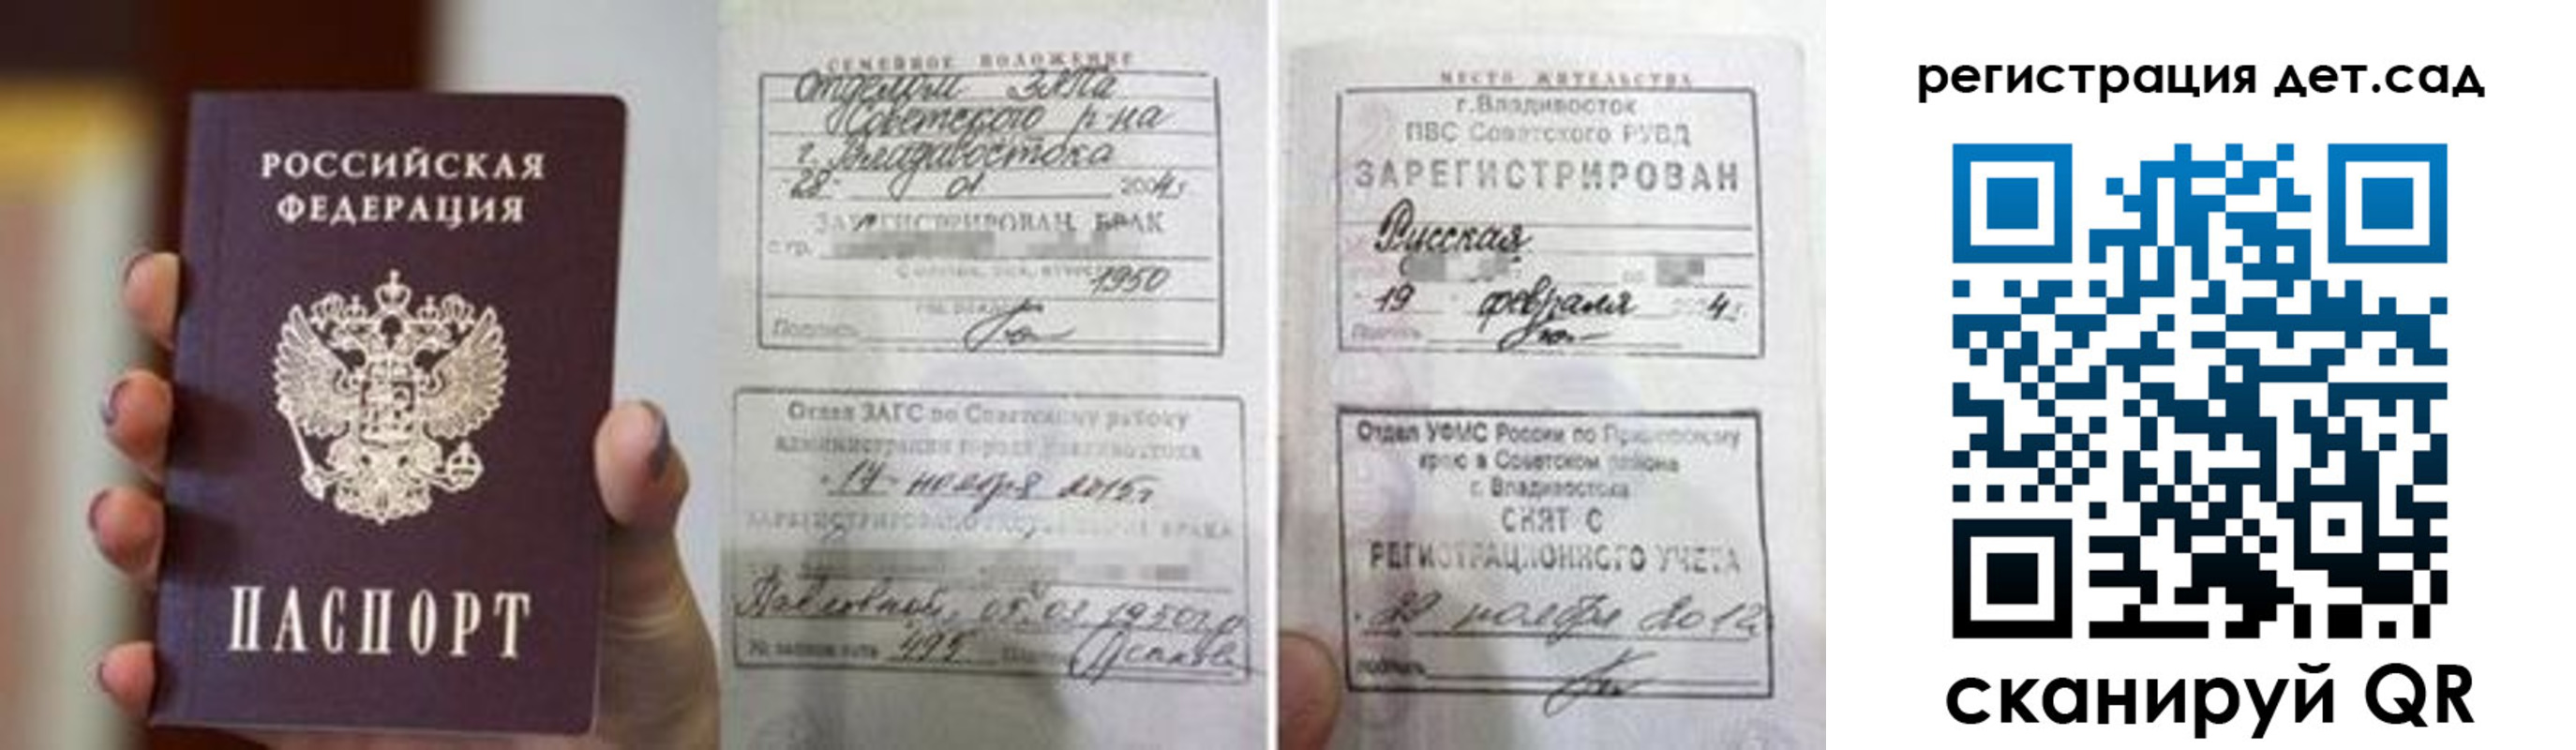 РОССИЙСКАЯ
ФЕДЕРАЦИЯ
ПАСПОРТ
СЕМЕЙНОЕ ПОЛОЖЕНИЕ
Отделом ЗАГСа
Советского р-на
г. Владивостока
"28" 01 2004г.
ЗАРЕГИСТРИРОВАН БРАК
с гр.
1950
Подпись
Отдел ЗАГС по Советскому району
администрации города Владивостока
"17" ноября 2015г
БРАКА
Павловной, 05.03.1950г.р
495
МЕСТО ЖИТЕЛЬСТВА
г.Владивосток
ПВС Советского РУВД
ЗАРЕГИСТРИРОВАН
Русская
19 февраля 4г.
Подпись
Отдел УФМС России по Приморскому
краю в Советском районе
г. Владивостока
СНЯТ С
РЕГИСТРАЦИОННОГО УЧЕТА
ноября 2012
подпись
регистрация дет.сад
сканируй QR